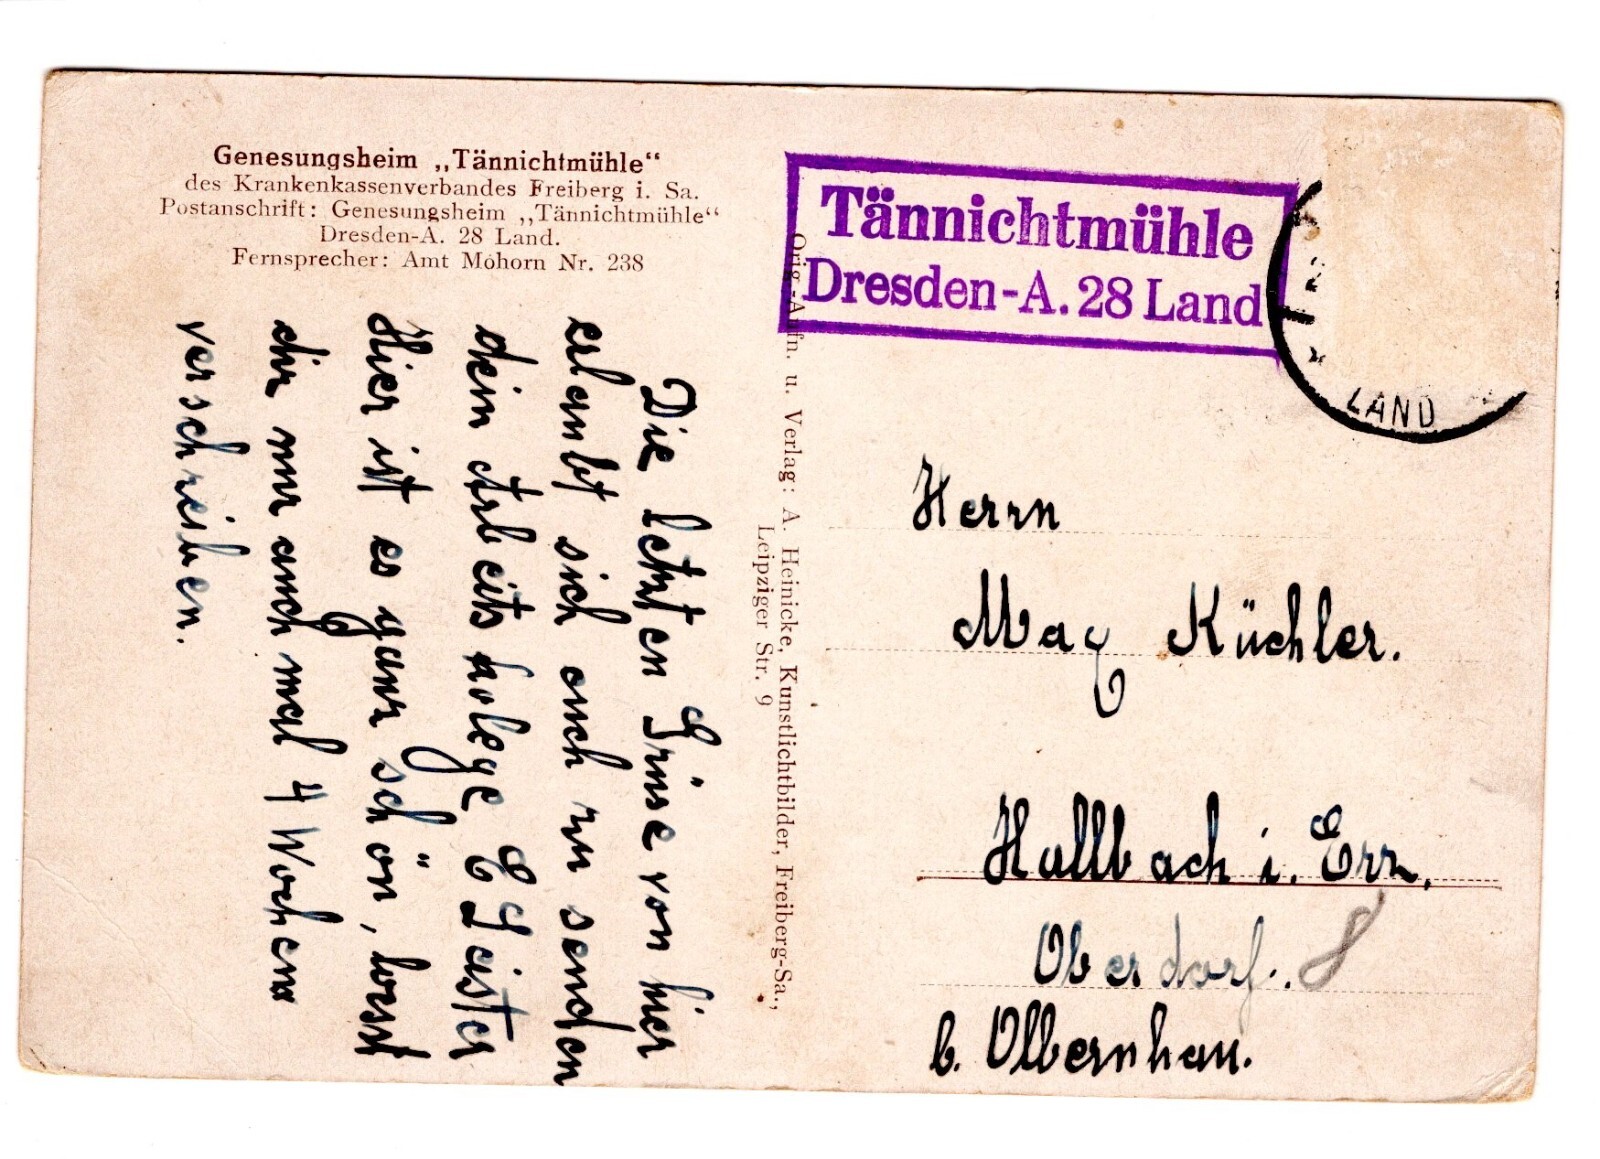 Genesungsheim „Tännichtmühle“
des Krankenkassenverbandes Freiberg i. Sa.
Postanschrift: Genesungsheim „Tännichtmühle“
Dresden-A. 28 Land.
Fernsprecher: Amt Mohorn Nr. 238
Die letzten Grüse von hier
erlaubt sich auch zu senden
dein Arbeitskolege E Leister
Hier ist es ganz schön, lasst
dir nur auch mal 4 Wochen
verschreiben.
Orig.-Aufn. u. Verlag: A. Heinicke, Kunstlichtbilder, Freiberg-Sa.,
Leipziger Str. 9
Tännichtmühle
Dresden-A. 28 Land
LAND
Herrn
Max Küchler.
Hallbach i. Erz.
Oberdorf. 8
b. Olbernhau.